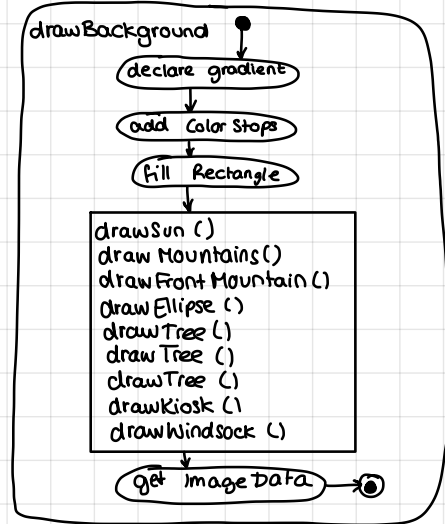 drawBackground
declare gradient
add Color Stops
fill Rectangle
drawSun ()
draw Mountains()
drawFront Mountain ()
drawEllipse ()
drawTree ()
draw Tree ()
drawTree ()
drawKiosk ()
drawWindsock ()
get Image Data